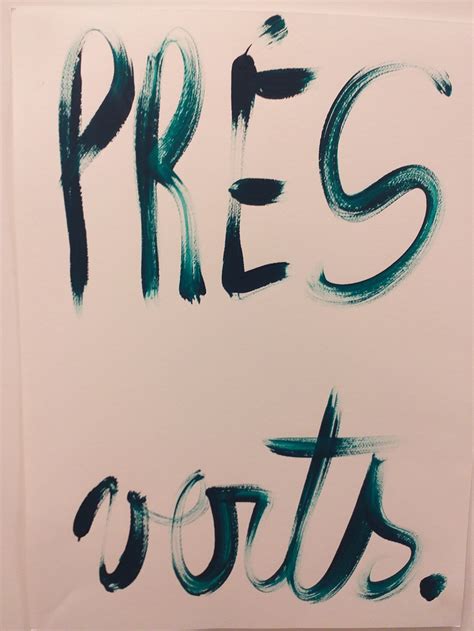 PRÉS
verts.